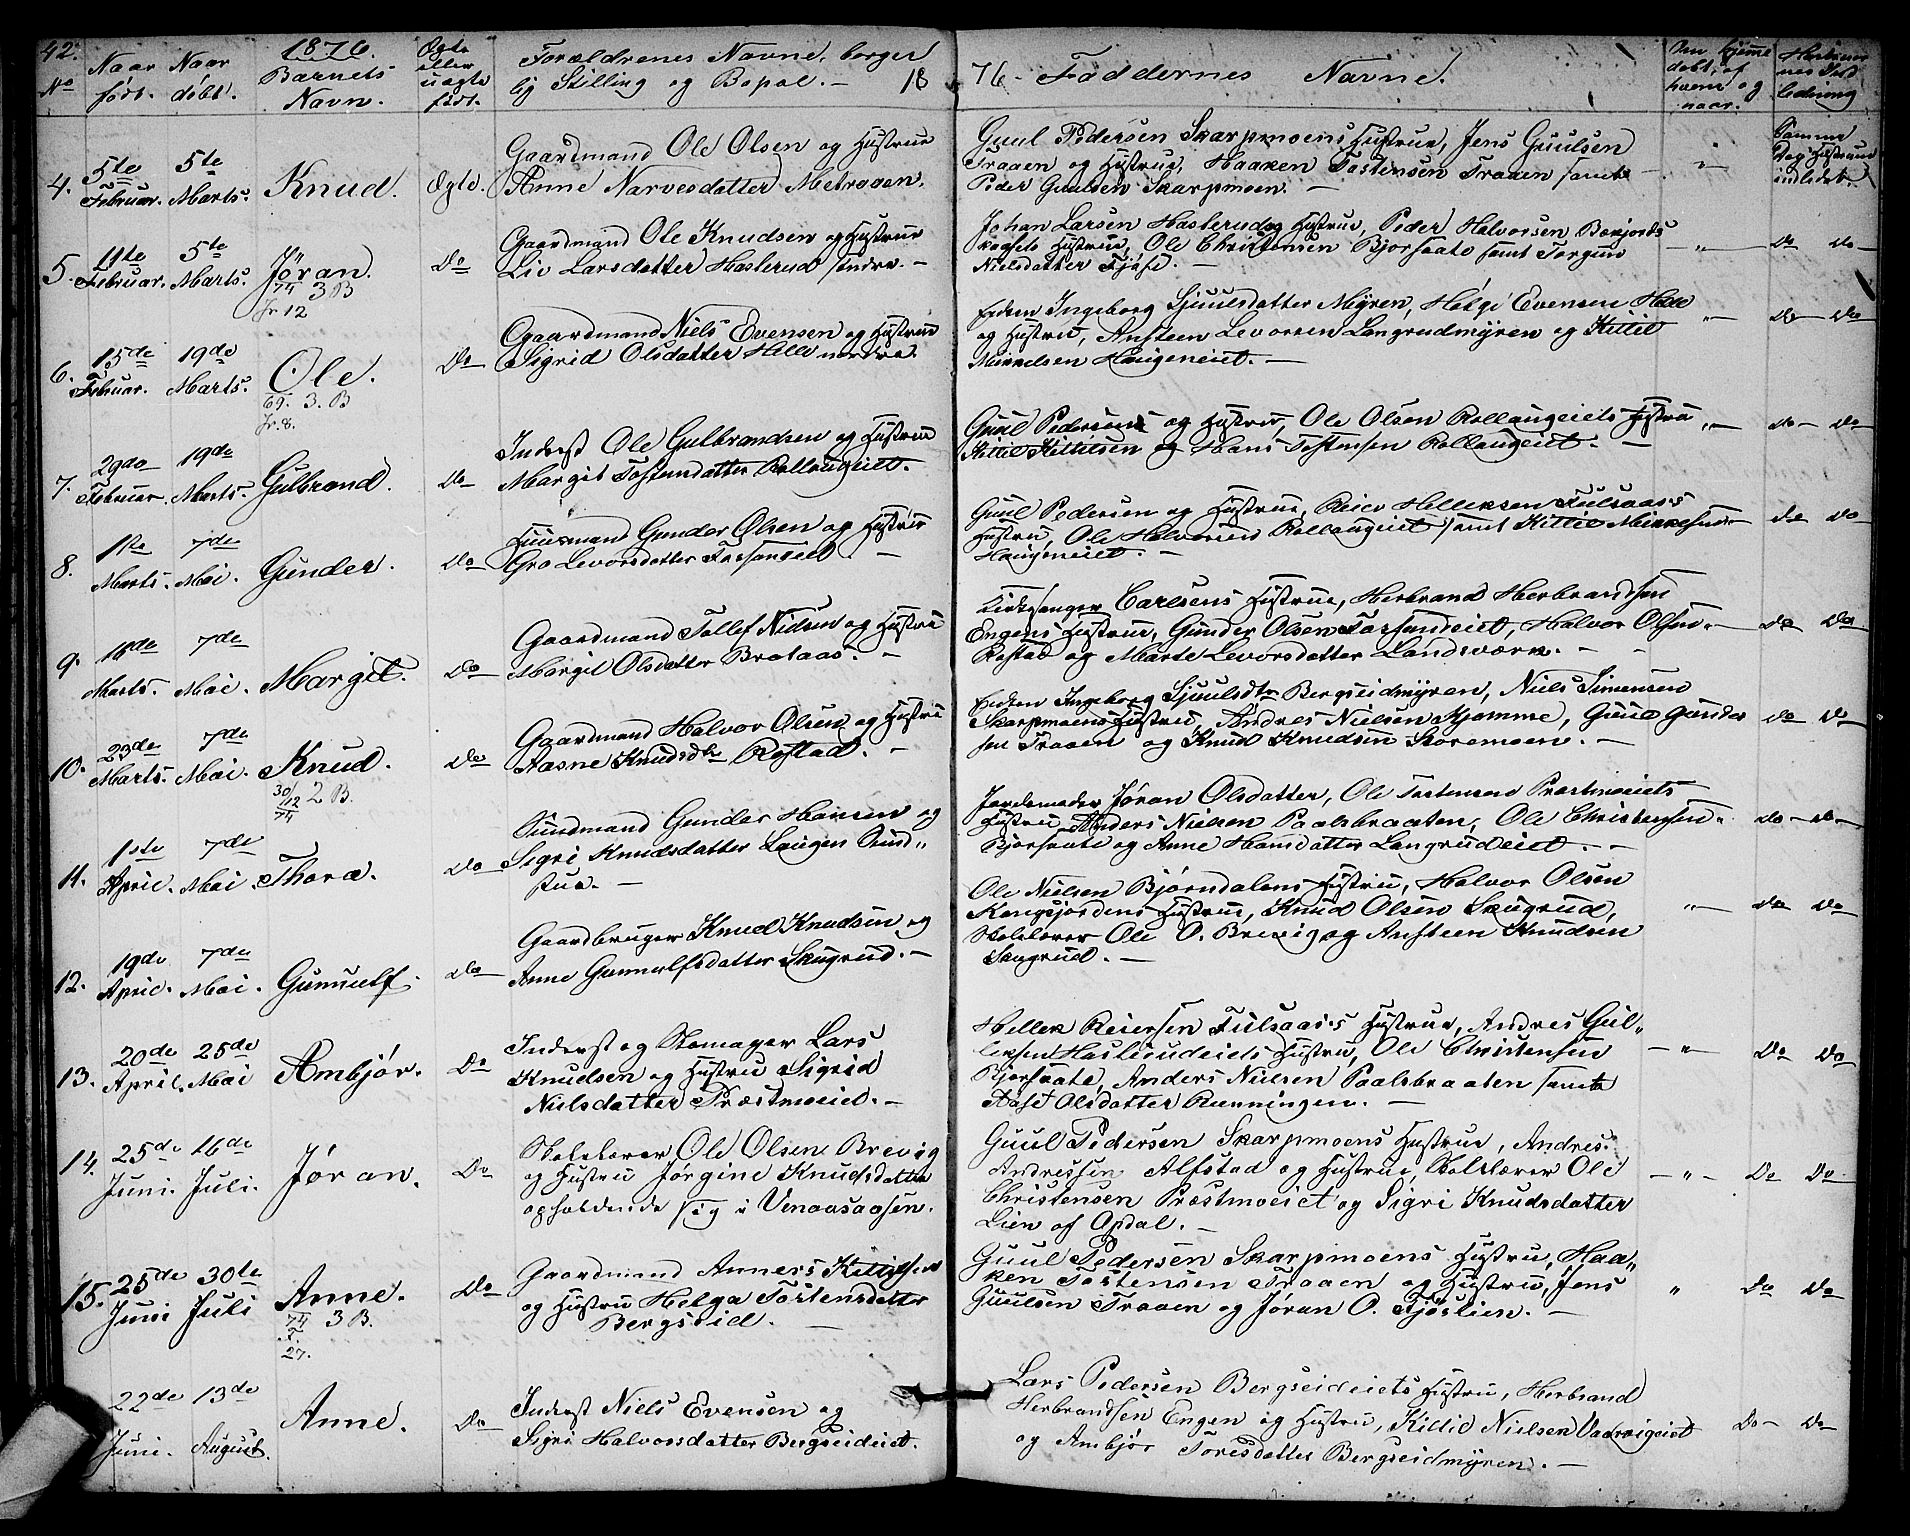 42.
No
Naar født.
Naar døbt.
1876.
Barnets Navn.
Ægte eller uægte født.
Forældrenes Navne, borger
lig Stilling og Bopæl. — 18
76 — Faddernes Navne.
Om hjemme
døbt, af
hvem og
naar.
4. 5te Februar. 5te Marts. Knud. Ægte.
Gaardmand Ole Olsen og Hustrue
Anne Narvesdatter Metraaen.
Guul Pedersen Skarpmoens Hustrue, Jens Guulsen
Traaen og Hustrue, Haaken Tostensen Traaen samt
Peder Guulsen Skarpmoen. —
Samme
Dag Hustruen
indledet.
5. 11te Februar. 5te Marts. Jøran. Do
74 3 B
Jr 12
Gaardmand Ole Knudsen og Hustrue
Liv Larsdatter Haslerud søndre. —
Johan Larsen Haslerud og Hustrue, Peder Halvorsen
Hustrue, Ole Christensen Bjørsaate samt Torgun
Nielsdatter Fjøse. —
" Do Do
6. 15de Februar. 19de Marts. Ole. Do
69. 3. B
Jr. 8.
Gaardmand Niels Evensen og Hustrue
Sigrid Olsdatter Helle nordre.
Enken Ingeborg Sjuulsdatter Myren, Helge Evensen Helle
og Hustru, Ansteen Levorsen Langrudmyren og Kittil
Mikkelsen Haugeneiet. —
" Do Do
7. 29de Februar. 19de Marts. Gulbrand. Do
Inderst Ole Gulbrandsen og Hustrue
Margit Tostensdatter Rollaugeiet.
Guul Pedersens og Hustrue, Ole Olsen Rollaugeiets Hustru
Kittil Kittilsen og Hans Tostensen Rollaugeiet. —
" do Do
8. 1ste Marts. 7de Mai. Gunder. Do
Huusmand Gunder Olsen og Hustrue
Gro Levorsdatter
Guul Pedersen og Hustrue, Reier Helleksen Fulsaass
Hustru, Ole Halvorsen Rollaugeiet samt Kittil Mikkelsen
Haugeneiet. —
Do Do
9. 18de Marts. 7de Mai. Margit. Do
Gaardmand Tollef Nielsen og Hustru
Margit Olsdatter Brataas. —
Kirkesanger Carlsens Hustrue, Herbrand Herbrandsen
Engens Hustrue, Gunder Olsen Halvor Olsen
Rostad og Marte Levorsdatter Landsværk. —
do Do
10. 23de Marts. 7de Mai. Knud. Do
30/12 2 B.
74
Gaardmand Halvor Olsen og Hustru
Aasne Knudsdtr Rostad. —
Enken Ingeborg Sjuulsdtr Bergseidmyren, Niels Simensen
Skarpmoens Hustru, Andres Nielsen Kjomme, Guul Gunder
sen Traaen og Knud Knudsen Storemoen. —
do Do
11. 1ste April. 7de Mai. Thora. Do
Sundmand Gunder Hansen og
Sigri Knudsdatter Laugen Sund„
stue. —
Jordemoder Jøran Olsdatter, Ole Tostensen Præstmoeiets
Hustru, Anders Nielsen Paalsbraaten, Ole Christensen
Bjørsaate og Anne Hansdatter Langrudeiet. —
do Do
12. 19de April. 7de Mai. Gunnulf. Do
Gaardbruger Knud Knudsen og
Anne Gunnulfsdatter Skugrud. —
Ole Nielsen Bjørndalens Hustru, Halvor Olsen
Kongsjordens Hustrue, Knud Olsen Skugrud,
Skolelærer Ole O. Brevig og Ansteen Knudsen
Skugrud. —
" do Do
13. 20de April. 25de Mai Ambjør. Do
Inderst og Skomager Lars
Knudsen og Hustru Sigrid
Nielsdatter Præstmoeiet. —
Hellek Reiersen Fulsaas's Hustrue, Andres Gul„
leksen Hasleiudeiets Hustru, Ole Christensen
Bjørsaate, Anders Nielsen Paalsbraaten samt
Aase Olsdatter Runningen. —
" Do Do
14. 25de Juni. 16de Juli. Jøran. Do
Skolelærer Ole Olsen Brevig
og Hustru Jørgine Knudsdatter
opholdende sig i Venaasaasen.
Guul Pedersen Skarpmoens Hustrue, Andres
Andressen Alfstad og Hustrue, Skolelærer Ole
Christensen Præstmoeiet og Sigri Knudsdatter
Lien af Opdal. —
" Do Do
15. 25de Juni 30te Juli Anne. Do
74 3 B.
F.
27.
Gaardmand Anners Kittilsen
og Hustru Helga Tostensdatter
Bergseid. —
Guul Pedersen Skarpmoens Hustru, Haa„
ken Tostensen Traaen og Hustru, Jens
Guulsen Traaen og Jøran O. Fjøslien. —
" Do Do
22de Juni. 13de August. Anne. Do
Inderst Niels Evensen og
Sigri Halvorsdatter Bergseideiet.
Lars Pedersen Bergseideiets Hustru, Herbrand
Herbrandsen Engen og Hustru, Kittil Nielsen
og Ambjør Toresdatter Bergseidmyren. —
Do Do